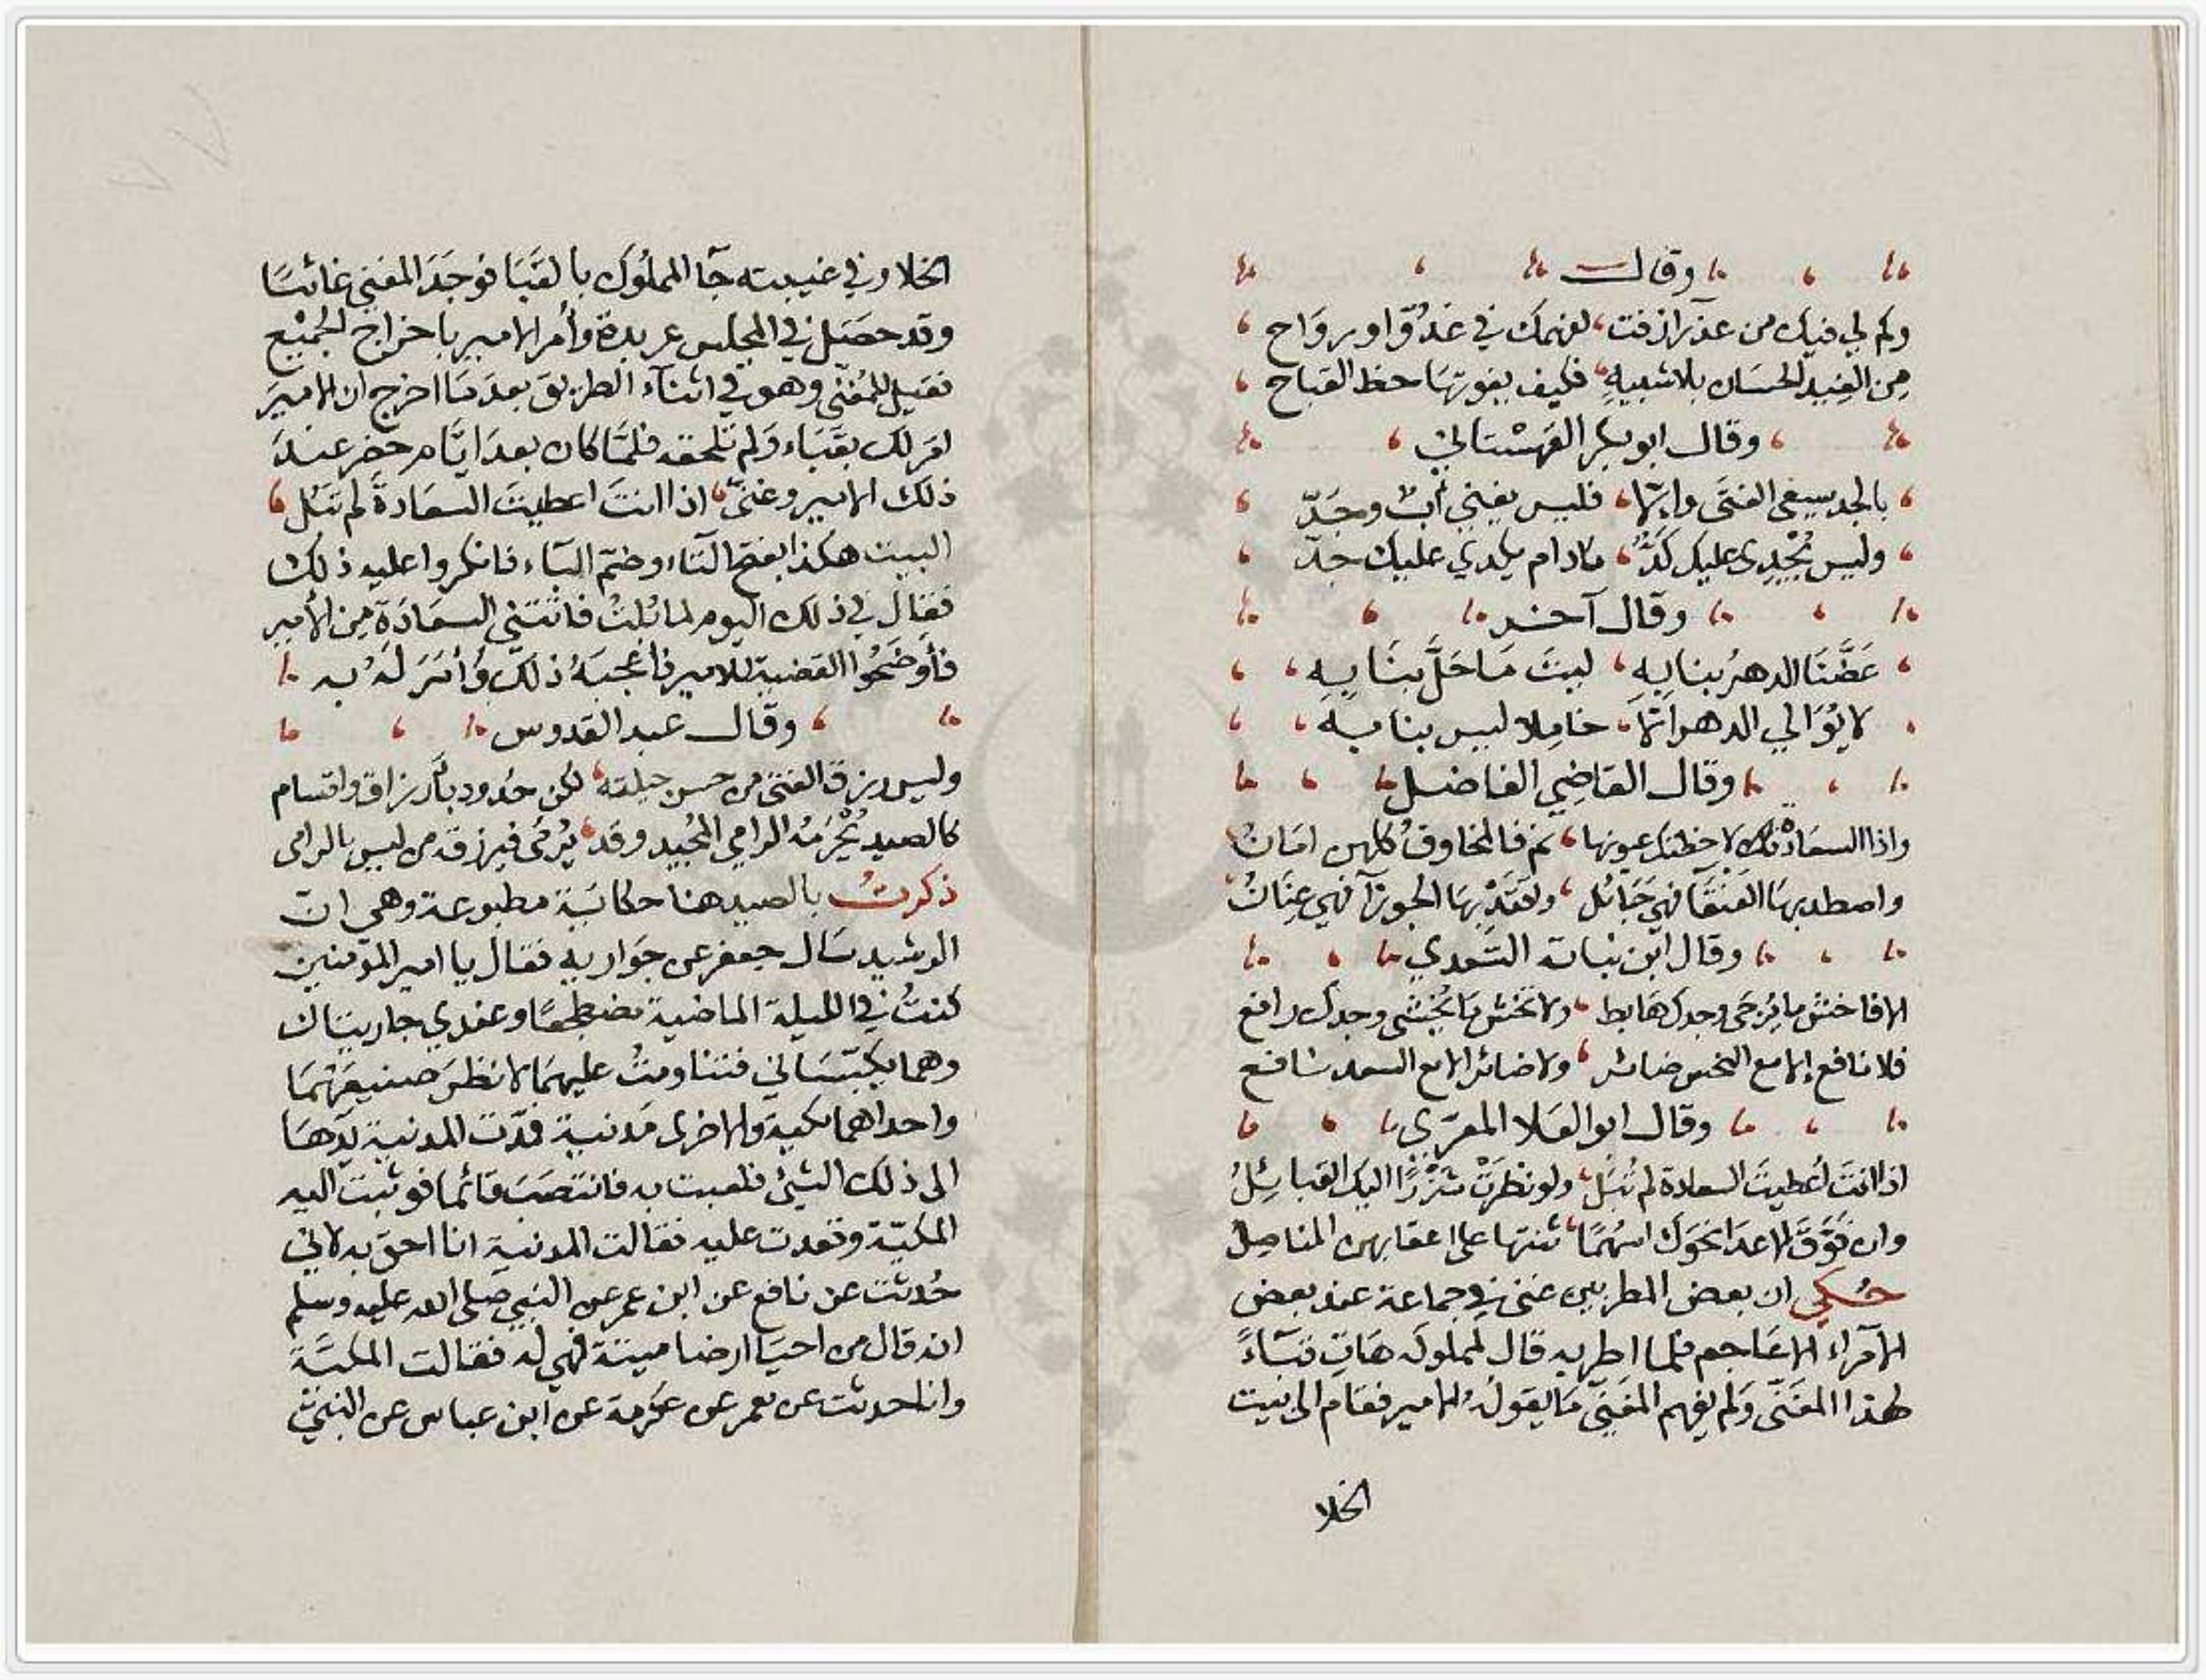 وقال
وكم لي فيك من عذراء زفت لفهمك في غدوّ او برواح
من الغيد الحسان بلا شبيهٍ فكيف يفوتها حظ القباح
وقال ابو بكر القهستاني
بالجد يسعى الفتى والّا فليس يغني أبٌ وجَدّ
وليس يُجْدِي عليك كَدٌّ مادام يكدي عليك جدّ
وقال آخر
عَضَّنَا الدهرُ بنابِهِ ليتَ مَا حَلَّ بنَا بِهِ
لا يُوَالي الدهر الّا خامِلا ليس بنابِه
وقال القاضِي الفاضل
واذا السعادة لاحظتك عيونها نم فالمخاوفُ كلهن امَانُ
واصطد بها العَنْقَآ فهي حَبَائل واقتَدْ بهَا الجوزآ فهي عِنَانُ
وقال ابن نباتة السَّعدي
الا فاخش ما يُرجَى وجدك هَابط ولا تخش مَا يُخشى وجدك رافع
فلا نافع إلا مع النحس ضائر ولا ضائر الا مع السعد نافع
وقال ابو العَلا المعَرّي
اذا انتَ أُعْطيتَ السعادة لم تُبَلْ ولو نظرَتْ شَزْرًا اليك القبائِلُ
وان فَوَّقَ الاعدَا نَحوَكَ اسْهُمًا ثنتها على اعقابهن المناصِلُ
حُكي ان بعض المطربين غنى في جماعة عند بعض
الأمراء الاعَاجم فلما اطربه قال لمملوكه هَاتِ قبَآءً
لهذا المغَنّى وَلم يفهم المغَنِّي مَا يقولُه الامير فقام الى بيت
الخلا
الخلا وفي غيبته جآ المملُوك بالقَبَا فوجَدَ المغني غائبًا
وقد حصَل في المجلس عربدة وأمر الامير باخراج الجميْع
فقيل للمُغنّي وهو في اثنآء الطريق بعد مَا اخرج ان الاميرَ
امَر لك بقَبَاء وَلم تلحقه فلمَّا كان بعدَ ايَّام حضر عندَ
ذلك الامير وغنَّى اذا انتَ اعطيتَ السعَادةَ لم تنَل
البيت هكذا بفتح التاء وضم التاء فانكروا عليه ذلك
فقال في ذلك اليوم لما بُلتُ فاتتني السعَادَة من الأمير
فأوضَحُوا القضية للامير فأعجبَهُ ذلك وأمَرَ لَهُ به
وقال عبد القدوس
وليس رزق الفتى من حسن حيلته لكن حُدود بأرزاق واقسام
كالصيد يُحْرَمُه الرامي المُجيد وقد يُرْمَى فيرزقه من ليس بالرامى
ذكرتُ بالصيد هنا حكايَة مطبوعة وهي انّ
الرشيد سَال جعفر عن جَواريه فقال يا امير المؤمنين
كنتُ في الليلة الماضية مضطجعًا وعندي جاريتان
وهما يكبّسَاني فتناومتُ عليهمَا لانظرَ صنيعَهُمَا
واحداهما مكية والاخرى مَدنية فمدّت المدنية يدَهَا
الى ذلك الشئ فلعبت به فانتصَبَ قائما فوثبت اليه
المكيّة وقعدت عليه فقالت المدنية انا احق به لاني
حُدثت عن نافع عن ابن عمر عن النبي صَلى الله عليه وسلم
انه قال من احيَا ارضا ميتة فهي له فقالت المكيَّة
وانا حدثت عن معمر عن عكرمة عن ابن عباس عن النبيّ